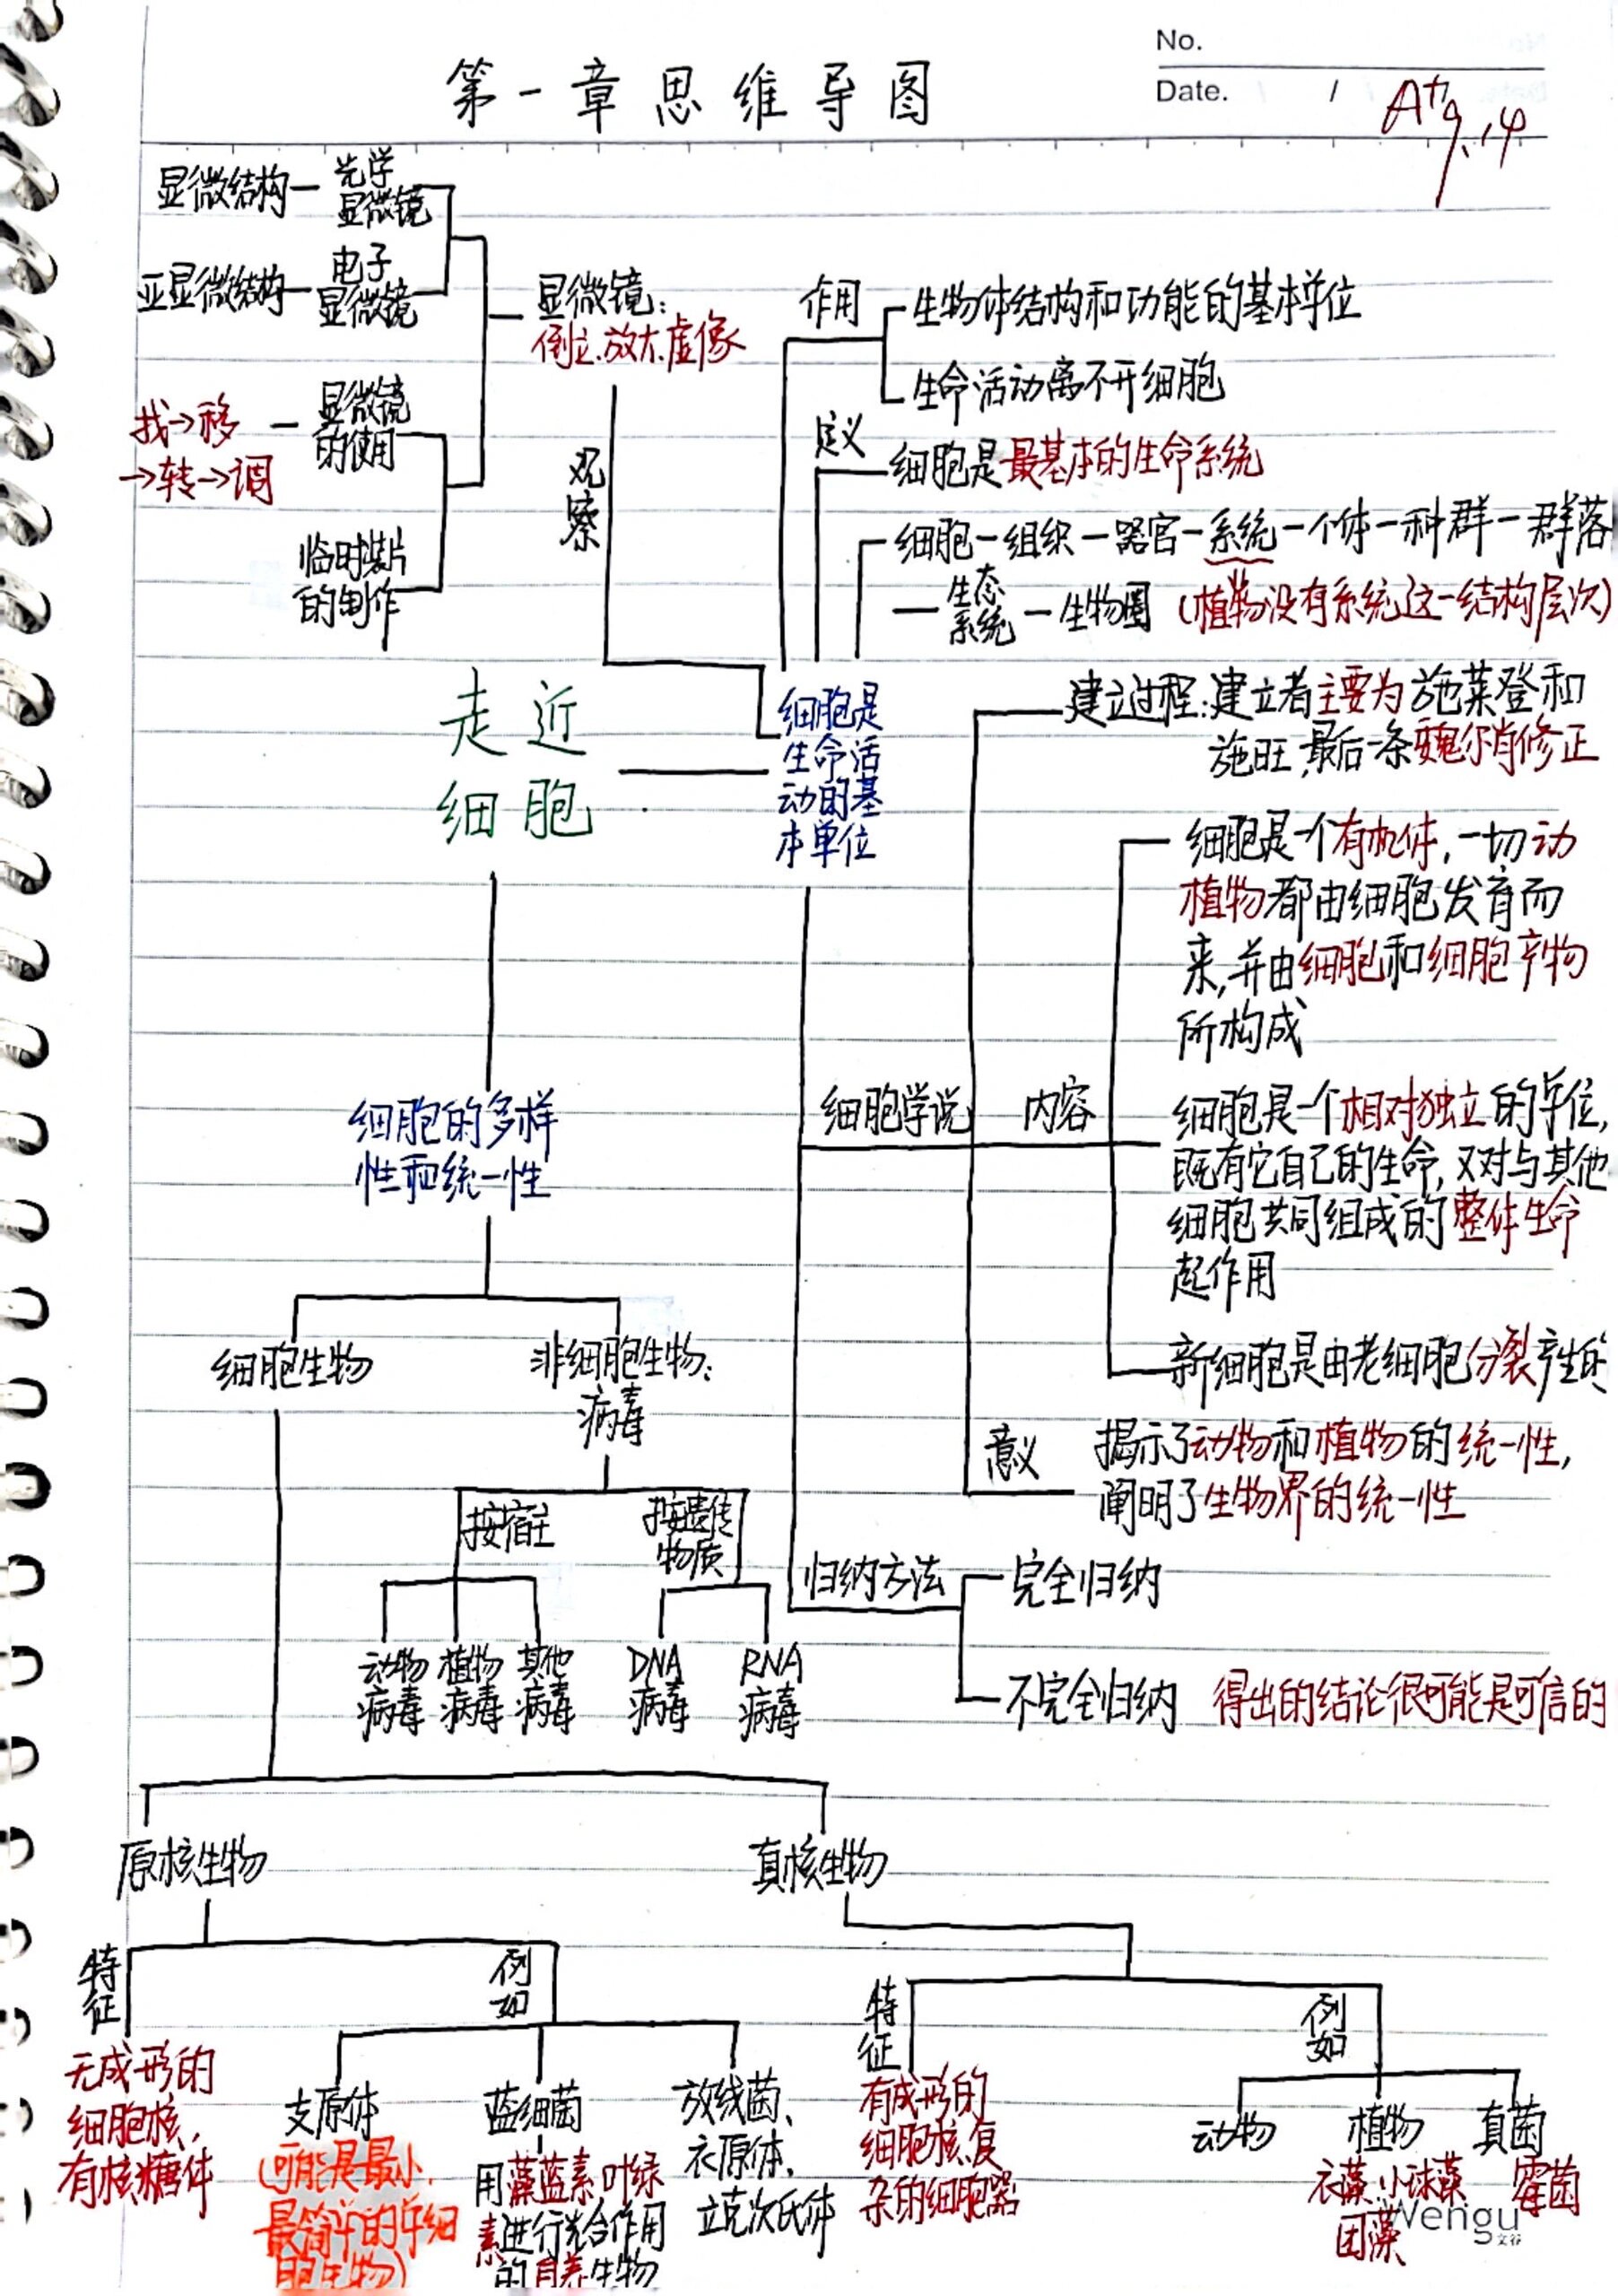 No.
Date. /
A+
9.14
第一章思维导图
显微结构
光学
显微镜
亚显微结构
电子
显微镜
显微镜：
倒立、放大、虚像
找→移
→转→调
显微镜
的使用
临时装片
的制作
观察
作用
生物体结构和功能的基本单位
生命活动离不开细胞
定义
细胞是最基本的生命系统
细胞—组织—器官—系统—个体—种群—群落
—生态
系统—生物圈 (植物没有系统这一结构层次)
走近
细胞
细胞是
生命活
动的基
本单位
建立过程：建立者主要为施莱登和
施旺，最后一条魏尔肖修正
细胞学说
内容
细胞是一个有机体，一切动
植物都由细胞发育而
来，并由细胞和细胞产物
所构成
细胞是一个相对独立的单位，
既有它自己的生命，又对与其他
细胞共同组成的整体生命
起作用
新细胞是由老细胞分裂产生的
意义
揭示了动物和植物的统一性，
阐明了生物界的统一性
归纳方法
完全归纳
不完全归纳 得出的结论很可能是可信的
细胞的多样
性和统一性
细胞生物
非细胞生物：
病毒
按宿主
按遗传
物质
动物
病毒
植物
病毒
其他
病毒
DNA
病毒
RNA
病毒
原核生物
真核生物
特征
无成形的
细胞核，
有核糖体
例如
支原体
(可能是最小、
最简单的单细
胞生物)
蓝细菌
用藻蓝素、叶绿
素进行光合作用
的自养生物
放线菌、
衣原体、
立克次氏体
特征
有成形的
细胞核、复
杂的细胞器
例如
动物
植物
衣藻、小球藻、
团藻
真菌
霉菌
Wengu
文谷